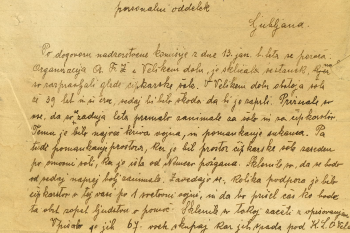 personalni oddelek
Ljubljana
Po dogovoru nadzorstvene komisije z dne 13. jan. t. leta se poroča
Organizacija A. F. Ž. v Velikem dolu, je sklicala sestanek,
so razpravljali glede čipkarske šole. V Velikem dolu obstoja šola
že 39 let in si ura, sedaj bi bilo škoda da bi jo zaprli. Priznale so
vse, da so zadnja leta premalo zanimale za šolo in za čipkarstvo
Temu je bilo največ kriva vojna, in pomankanje sukanca. Pa
tudi pomankanje prostora, ker je bil prostor čipkarske šole zaseden
po osnovni šoli, ka je šola od Nemcev požgana. Sklenile so, da se bodo
od sedaj naprej bolj zanimale. Zavedajo se, kolika podpora je bilo
čipkarstvo v tej vasi po 1 svetovni vojni, in da bo prišel čas ko bode
ta obrt zopet ljudstvu v pomoč. Sklenile so takoj začeti z vpisovanjem
Vpisalo se jih 67. vseh skupaj kar jih spada pod K.L.O. Veliki